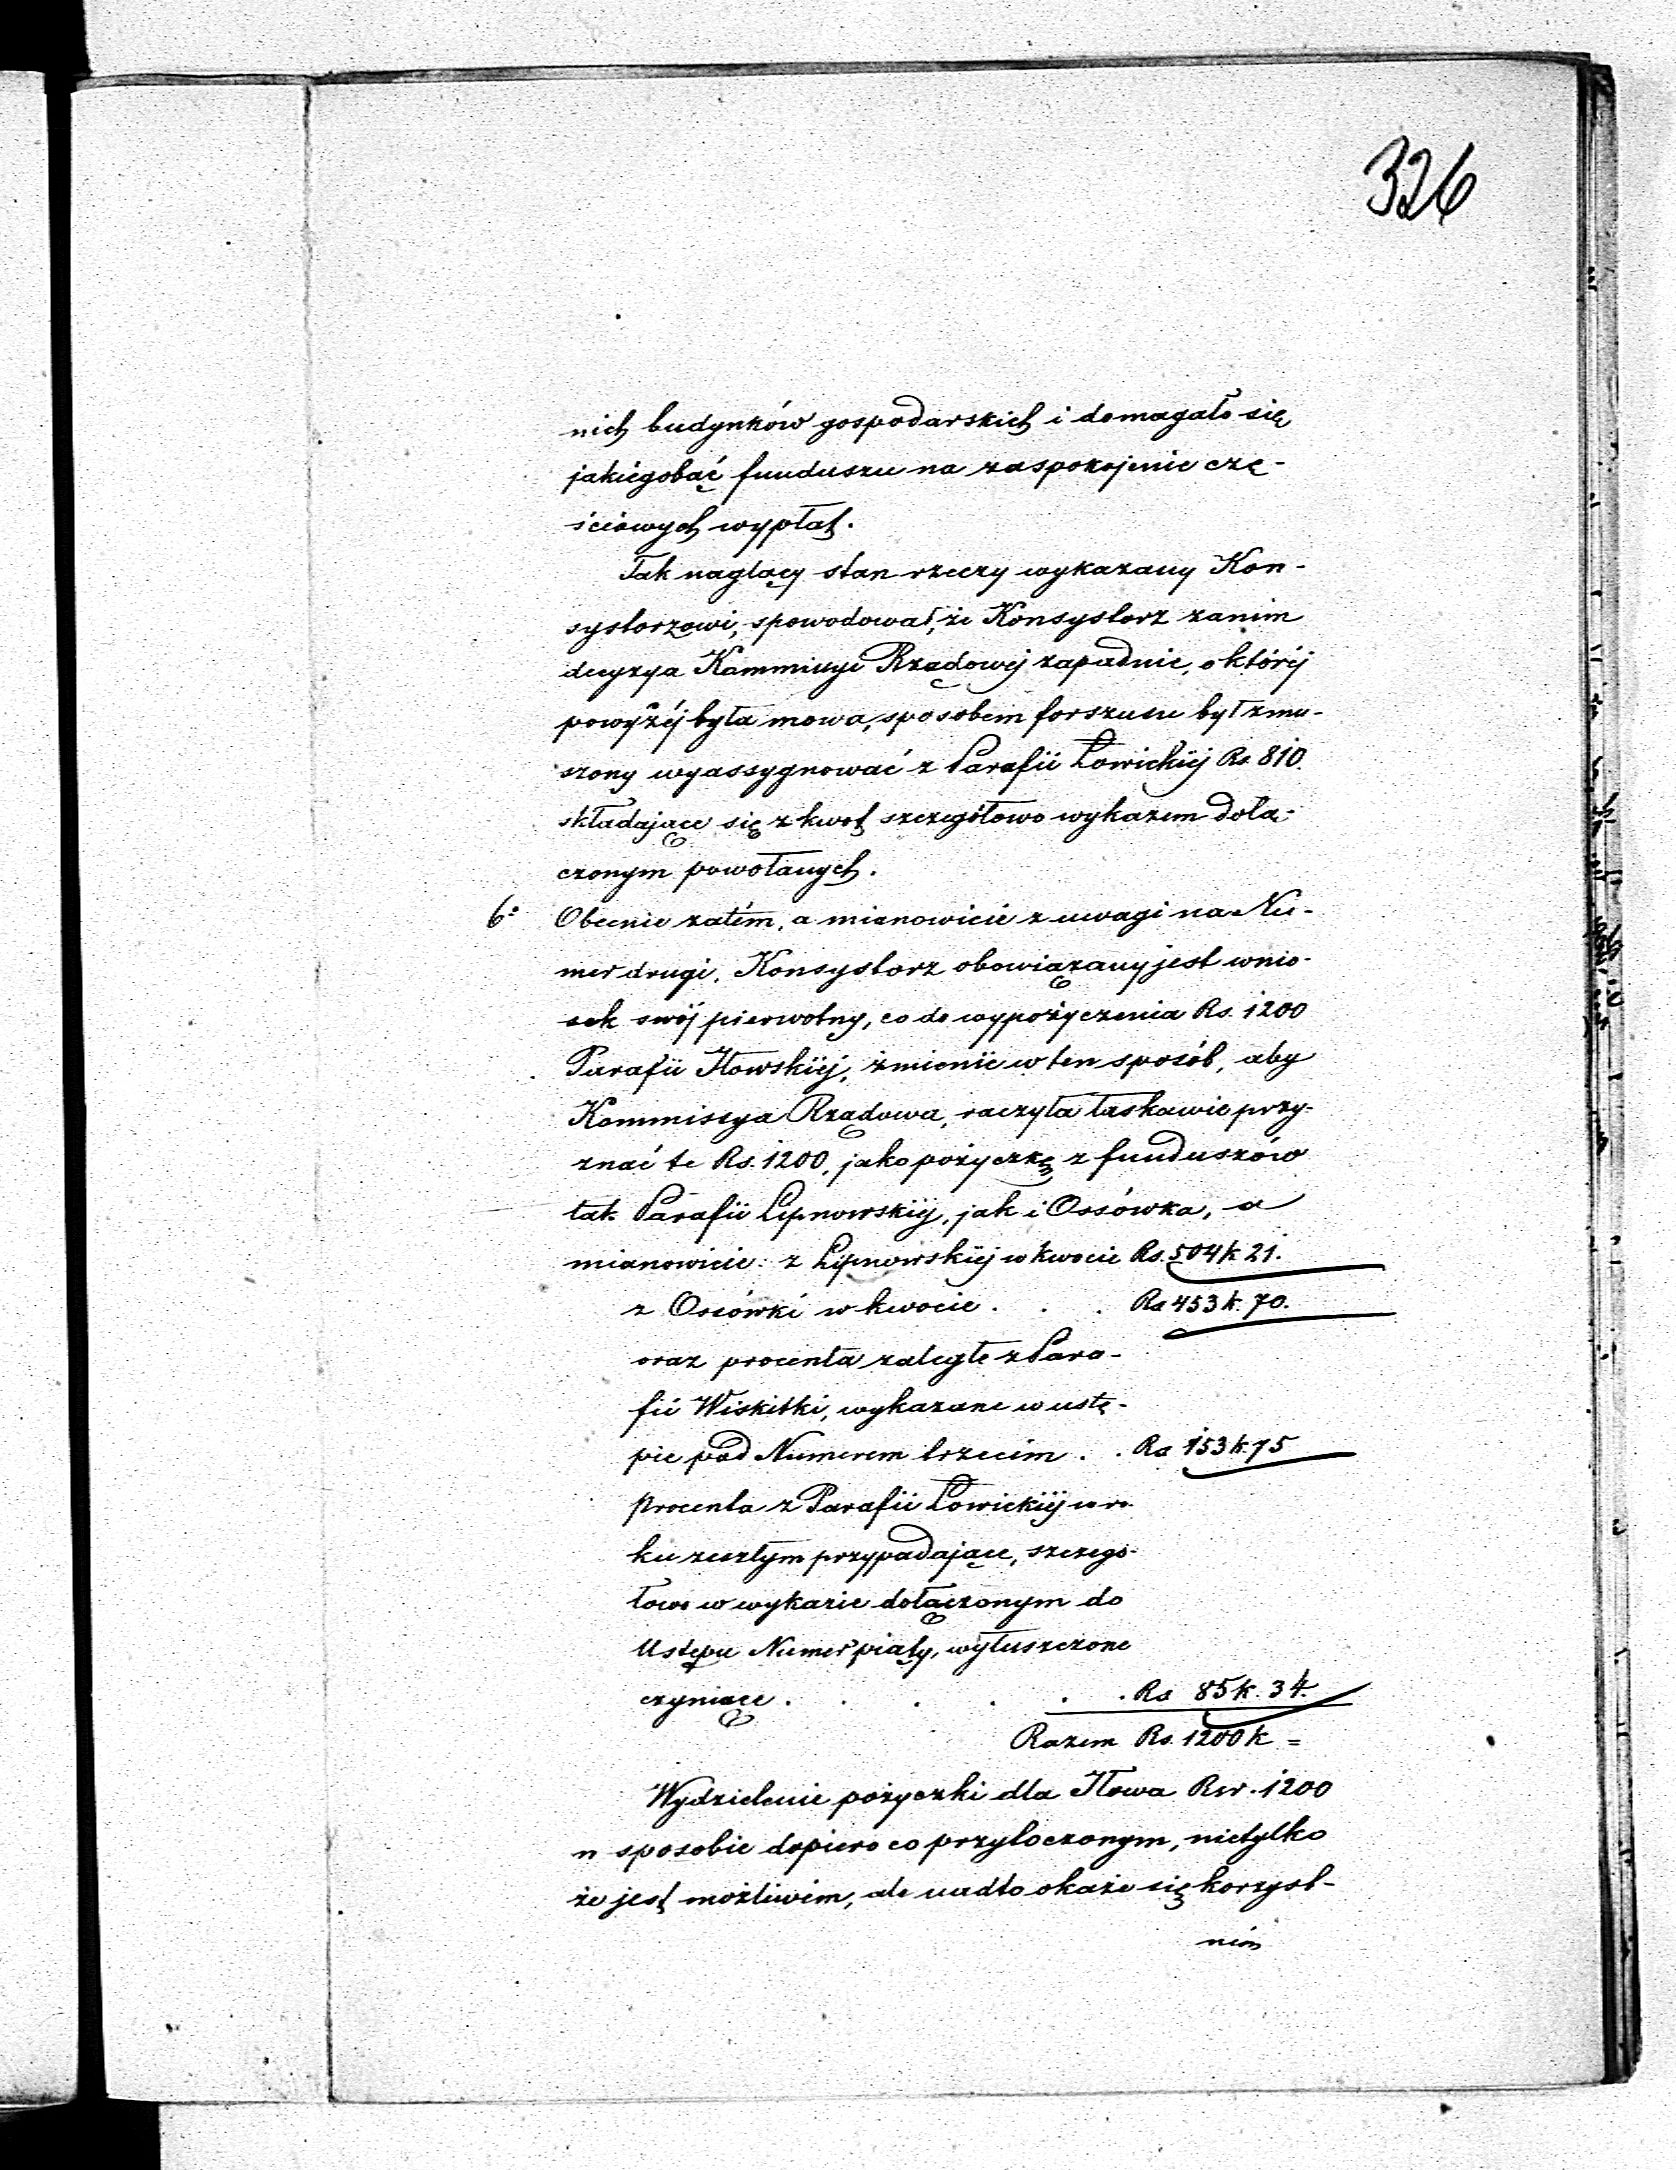 326
nich budynków gospodarskich i domagało się
jakiegobąć funduszu na zaspokojenie czę-
ściowych wypłat.
Tak naglący stan rzeczy wykazany Kon-
systorzowi, spowodował, że Konsystorz zanim
decyzya Kommisyi Rządowéj zapadnie, o któréj
powyżéj była mowa, sposobem forszusu był zmu-
szony wyassygnować z Parafii Łowickiéj Rs. 810.
składające się z kwot szczegółowo wykazem dołą-
czonym powołanych.
6o Obecnie zatém, a mianowicie z uwagi na Nu-
mer drugi, Konsystorz obowiązany jest wnio-
sek swój pierwotny, co do wypożyczenia Rs. 1200
Parafii Iłowskiéj, zmienić w ten sposób, aby
Kommissya Rządowa, raczyła łaskawie przy-
znać te Rs. 1200, jako pożyczkę z funduszów
tak Parafii Lipnowskiéj, jak i Ossówka, a
mianowicie: z Lipnowskiéj w kwocie Rs. 504 k 21.
z Ossówki w kwocie . . . Rs 453 k. 70.
oraz procenta zaległe z Para-
fii Wiskitki, wykazane w ustę-
pie pod Numerem trzecim . . Rs 153 k. 75
procenta z Parafii Łowickiéj w ro-
ku zeszłym przypadające, szczegó-
łowo w wykazie dołączonym do
Ustępu Numer piąty, wyłuszczone
czyniące . . . . . . Rs 85 k. 34.
Razem Rs. 1200 k =
Wydzielenie pożyczki dla Iłowa Rsr. 1200
w sposobie dopiero co przytoczonym, nietylko
że jest możliwém, ale nadto okaże się korzyst-
ném